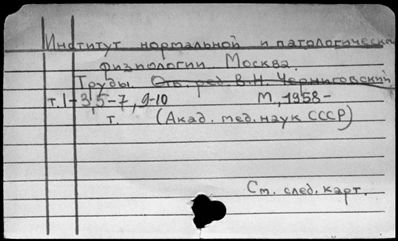 Институт нормальной и патологическ
физиологии. Москва.
Труды. Отв. ред. В.Н. Черниговский
т. 1-3, 5-7, 9-10 М., 1958-
т. (Акад. мед. наук СССР)
См. след. карт.